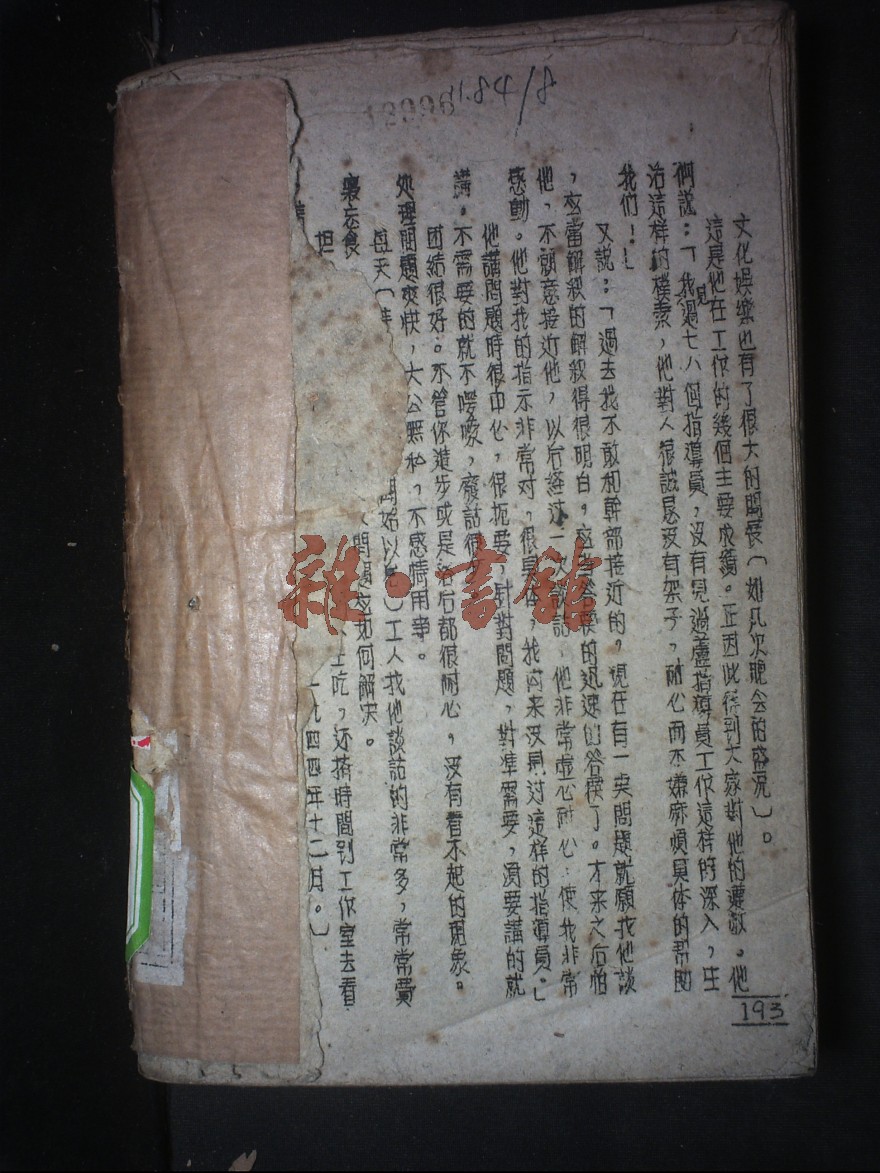 12996
11.84/8
文化娱樂也有了很大的開展(如几次晚会的盛况)。
這是他在工作的幾個主要成績。正因此得到大家對他的讚。他
們說:「我見過七八個指導員,没有見過盧指導員工作這样的深入,生
活這样的樸素,他對人很誠恳没有架子,耐心而不嫌麻煩具体的帮助
我们!」
又說:「過去我不敢和幹部接近的,現在有一些問題就願找他談
,应當解釈的解釈得很明白,应当答模的迅速的答模了。才来之后怕
他,不願意接近他,以后經过一次談話,他非常虚心耐心,使我非常
感動。他對我的指示非常对,很具体,我向来没見过這样的指導員。」
他講問題時很中心,很扼要,針對問題,對準需要,須要講的就
講。不需要的就不啰嗦,廢話很
团結很好。不管你進步或是落后都很耐心,没有看不起的現象。
处理問題爽快,大公無私,不感情用事。
每天(開始以)工人找他談話的非常多,常常費
寢忘食問題应如何解决。
担上吃,还揩時間到工作室去看
一九四四年十二月。)
193
雜·書館